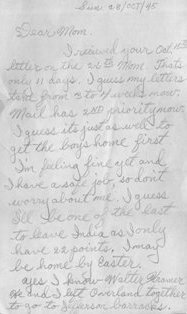 Sun 28/OCT/45
Dear Mom.
I recieved your Oct. 16th
letter on the 26th Mom. Thats
only 11 days. I guess my letters
take from 3 to 4 weeks now.
Mail has 2nd priority now.
I guess its just as well to
get the boys home first.
I'm feeling fine yet and
I have a safe job, so dont
worry about me. I guess
I'll be one of the last
to leave India as I only
have 22 points. I may
be home by Easter.
ayes I know Walter
He and I left Overland together
to go to Jefferson barracks.